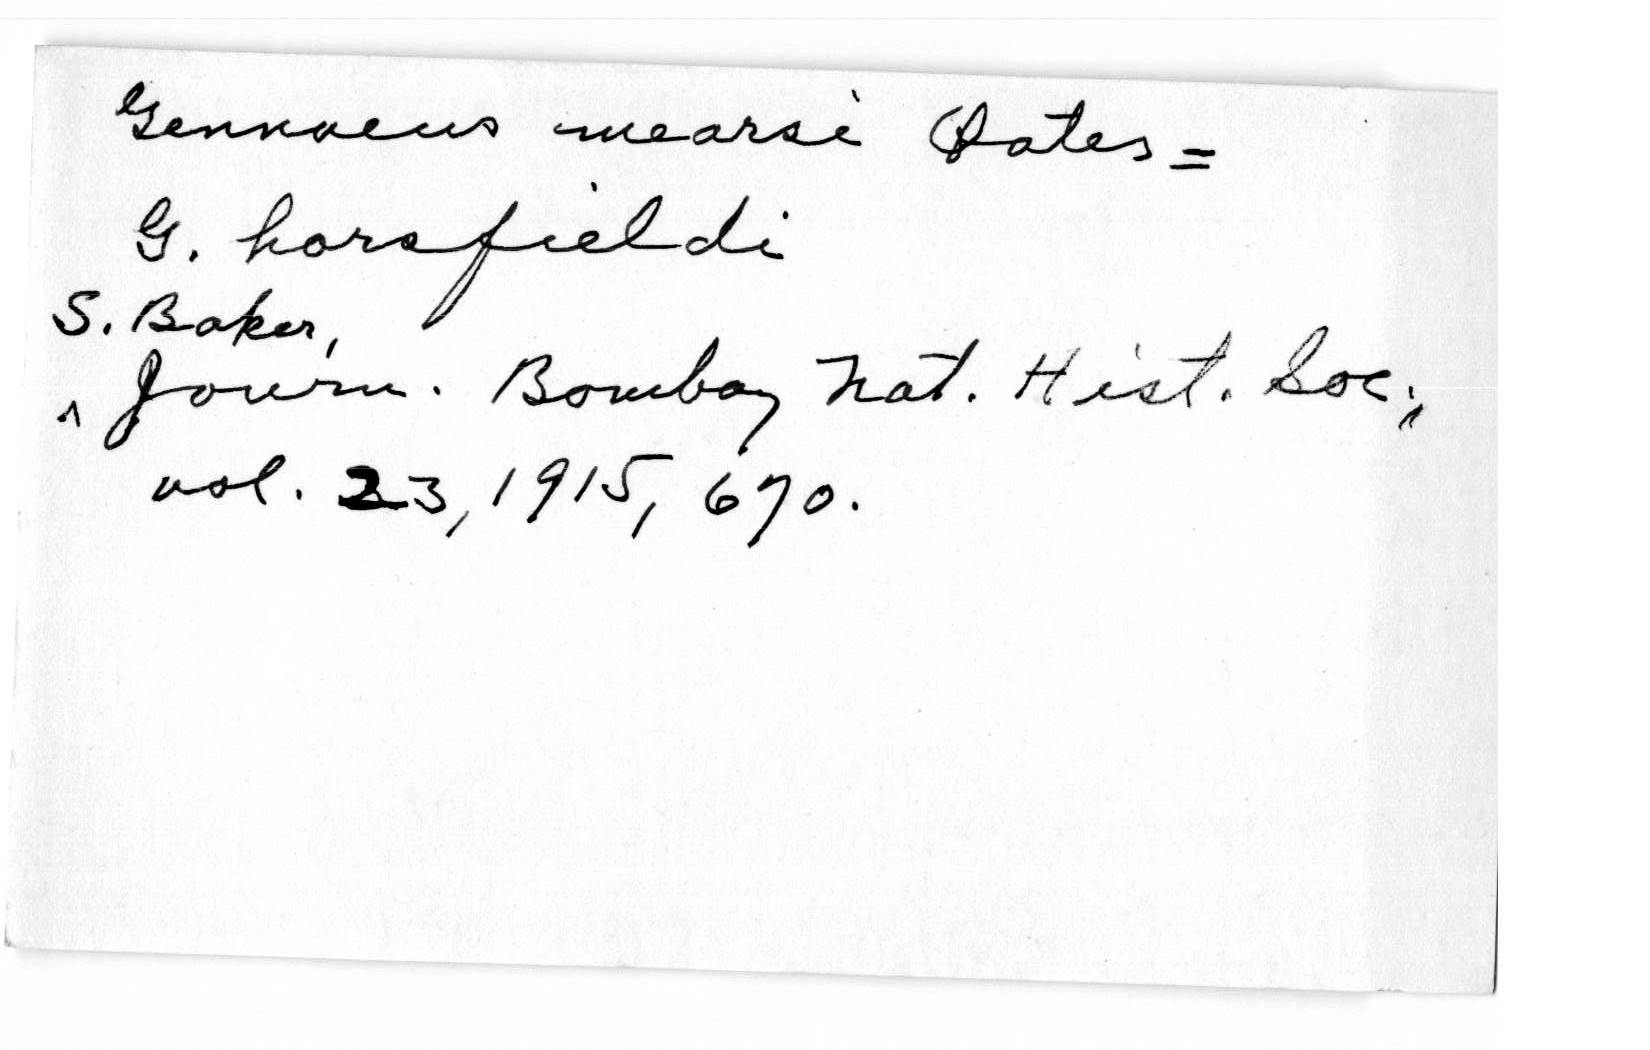 Gennaeus mearsi Oates =
G. horsfieldi
S. Baker,
^ Journ. Bombay Nat. Hist. Soc.,
vol. 23, 1915, 670.